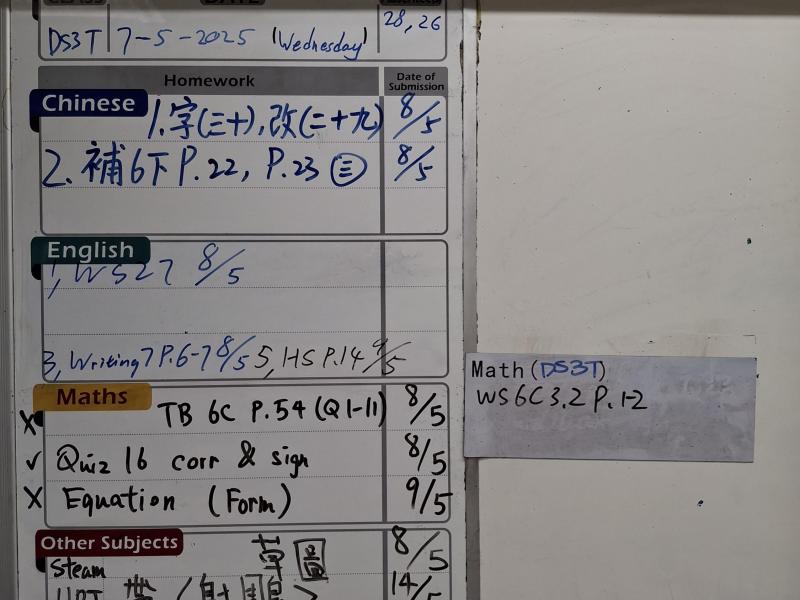 28, 26
DS3T 7-5-2025 (Wednesday)
Homework
Date of Submission
Chinese
1. 字(三十), 改(二十九) 8/5
2. 補6下 P.22, P.23 ㊂ 8/5
English
1, WS27 8/5
3, Writing7 P.6-7 8/5 5, HS P.14 9/5
Maths
X TB 6C P.54 (Q1-11) 8/5
✓ Quiz 16 corr & sign 8/5
X Equation (Form) 9/5
Other Subjects
Steam 8/5
14/5
Math (DS3T)
WS 6C 3.2 P.1-2